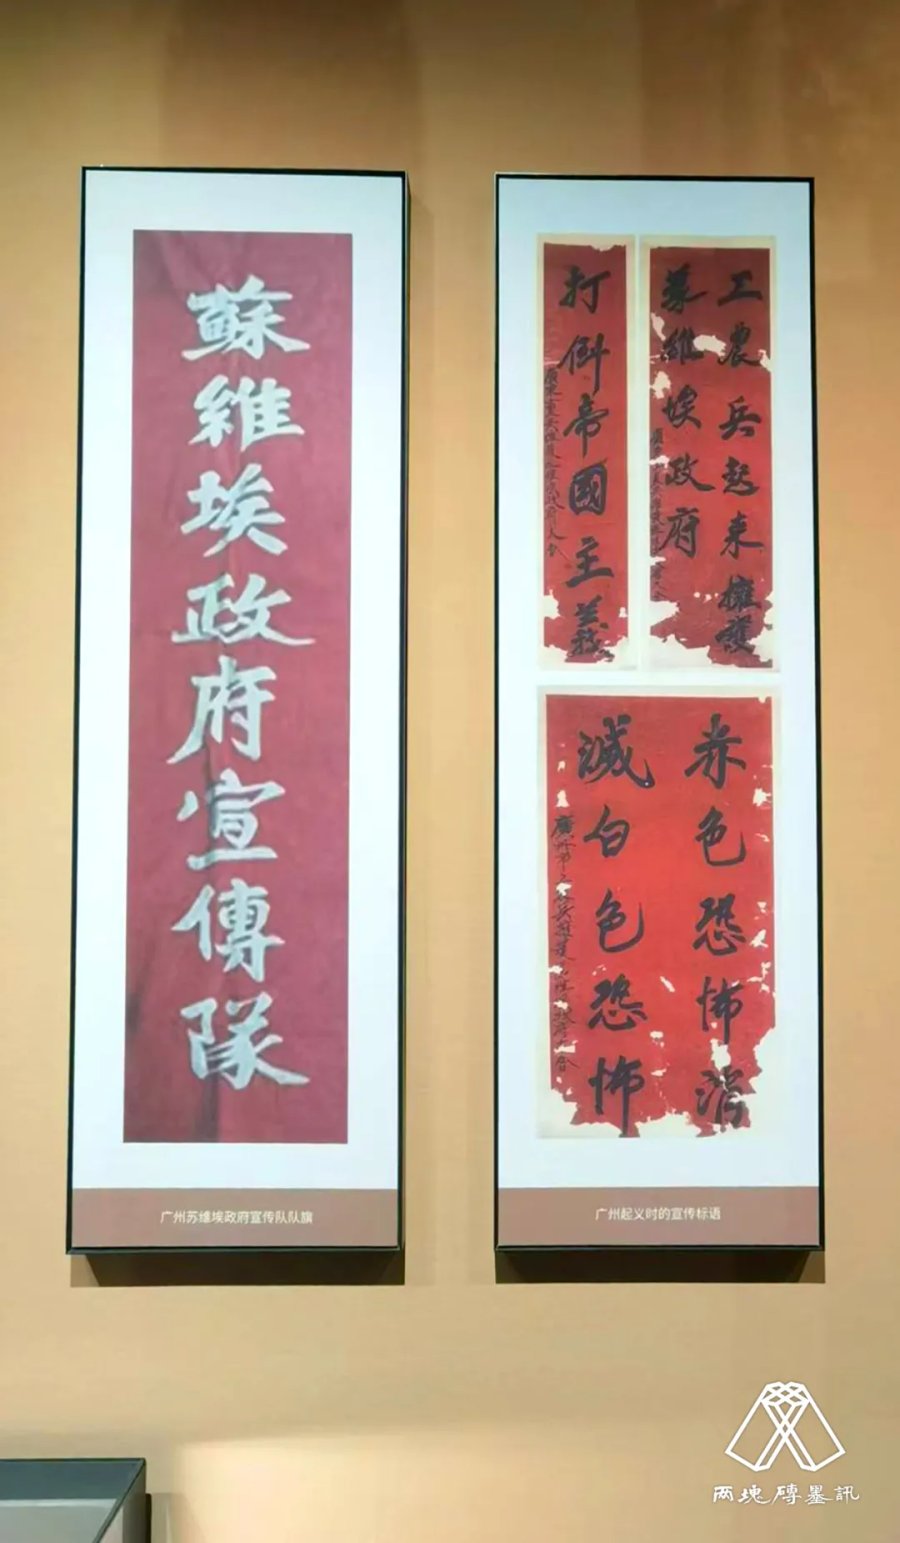 蘇維埃政府宣傳隊
广州苏维埃政府宣传队队旗
打倒帝國主義
工農兵起来擁護
蘇維埃政府
赤色恐怖消
滅白色恐怖
广州起义时的宣传标语
两塊磚墨訊